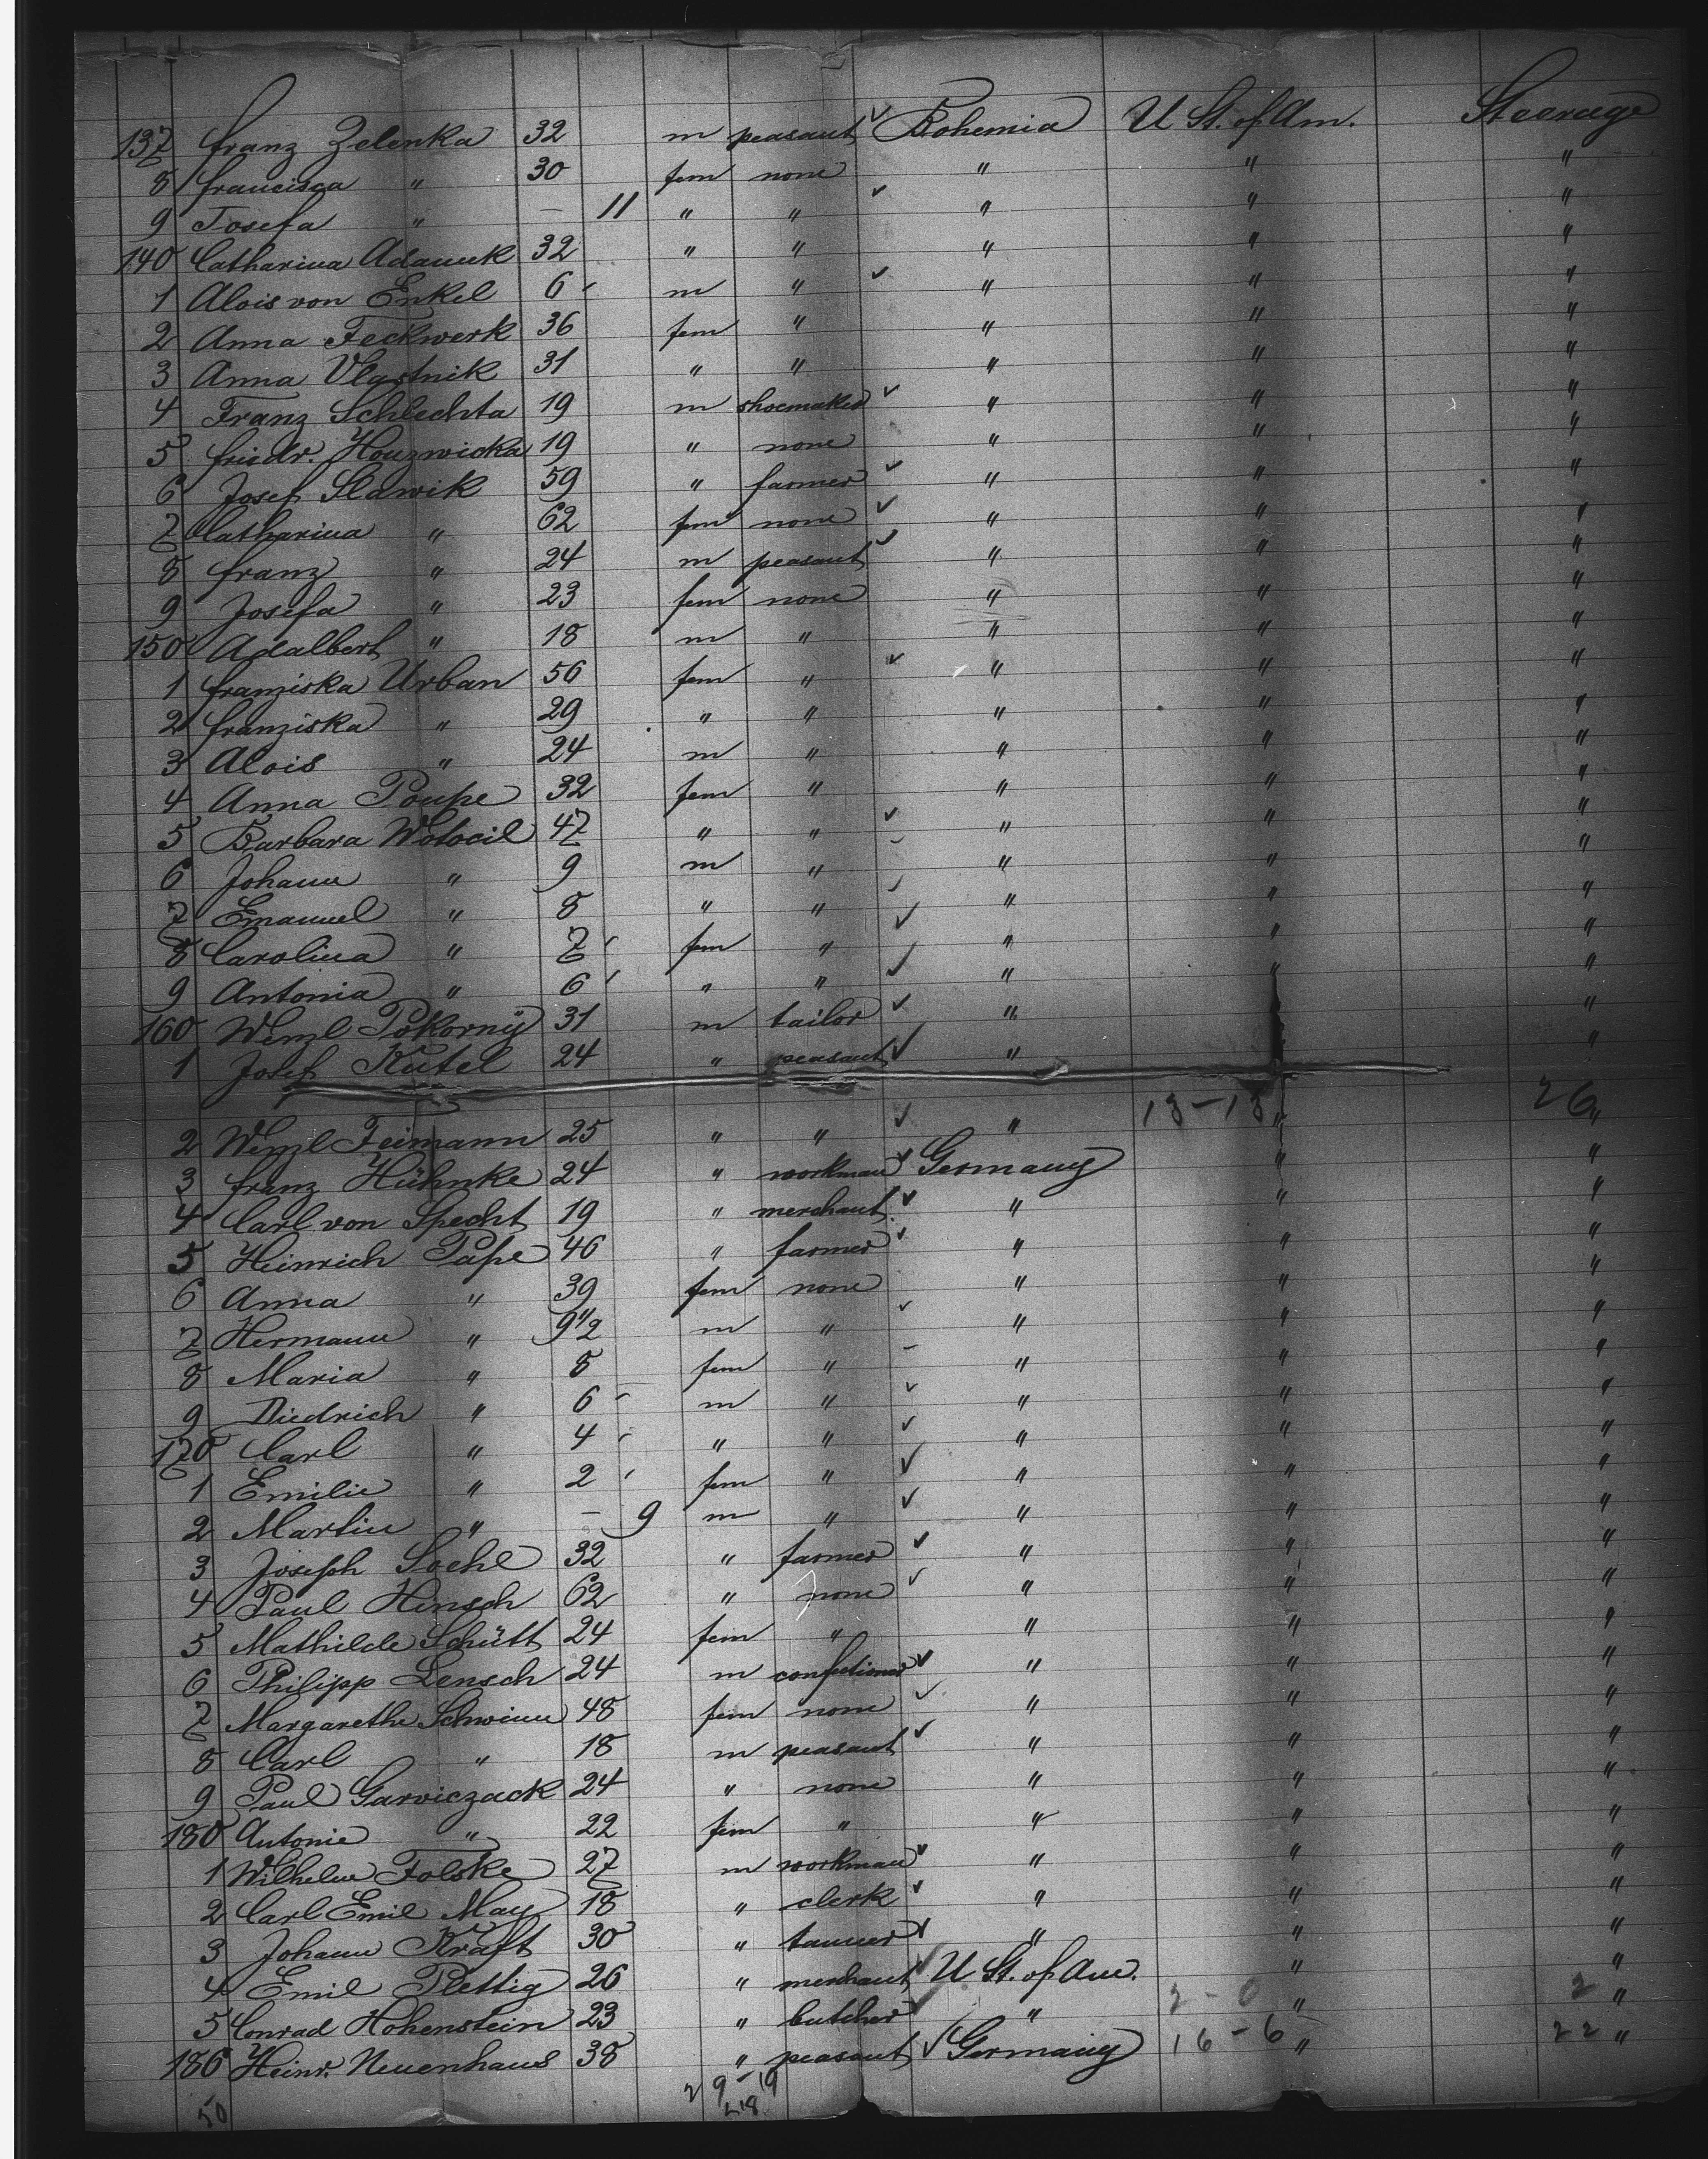 137 Franz Zelenka 32 m peasant ✓ Bohemia U St. of Am. Steerage
8 Francisca " 30 fem none " " "
9 Josefa " — 11 " " ✓ " " "
140 Catharina Adamek 32 " " " " "
1 Alois von Enkel 6 m " ✓ " " "
2 Anna Feckwerk 36 fem " " " "
3 Anna Vlastnik 31 " " " " "
4 Franz Schlechta 19 m shoemaker ✓ " " "
5 Friedr. Houzwicka 19 " none " " "
6 Josef Slawik 59 " farmer ✓ " " "
7 Catharina " 62 fem none ✓ " " "
8 Franz " 24 m peasant ✓ " " "
9 Josefa " 23 fem none " " "
150 Adalbert " 18 m " " " "
1 Franziska Urban 56 fem " ✓ " " "
2 Franziska " 29 " " " " "
3 Alois " 24 m " " " "
4 Anna Poupe 32 fem " " " "
5 Barbara Wotocil 47 " " ✓ " " "
6 Johann " 9 m " " " "
7 Emanuel " 8 " " ✓ " " "
8 Carolina " 7 fem " ✓ " " "
9 Antonia " 6 " " ✓ " " "
160 Wenzl Pokorny 31 m tailor ✓ " " "
1 Josef Kutel 24 " peasant ✓ " "
2 Wenzl Feimann 25 " " ✓ " 13-13 " 26 "
3 Franz Hühnke 24 " workman ✓ Germany " "
4 Carl von Specht 19 " merchant ✓ " " "
5 Heinrich Pape 46 " farmer ✓ " " "
6 Anna " 39 fem none " " "
7 Hermann " 9 1/2 m " ✓ " " "
8 Maria " 8 fem " " " "
9 Diedrich " 6 m " ✓ " " "
170 Carl " 4 " " ✓ " " "
1 Emilie " 2 fem " ✓ " " "
2 Martin " — 9 m " ✓ " " "
3 Joseph Soehl 32 " farmer ✓ " " "
4 Paul Hinsch 62 " none ✓ " " "
5 Mathilde Schütt 24 fem " " " "
6 Philipp Lensch 24 m confectioner ✓ " " "
7 Margarethe Schwinn 48 fem none ✓ " " "
8 Carl " 18 m peasant ✓ " " "
9 Paul Garviczack 24 " none " " "
180 Antonie " 22 fem " " " "
1 Wilhelm Folske 27 m workman ✓ " " "
2 Carl Emil May 18 " clerk ✓ " " "
3 Johann Kraft 30 " tanner ✓ " " "
4 Emil Plettig 26 " merchant ✓ U St. of Am. " "
5 Conrad Hohenstein 23 " butcher ✓ " 2-0 " 2 "
186 Heinr. Neuenhaus 38 " peasant ✓ Germany 16-6 " 22 "
50